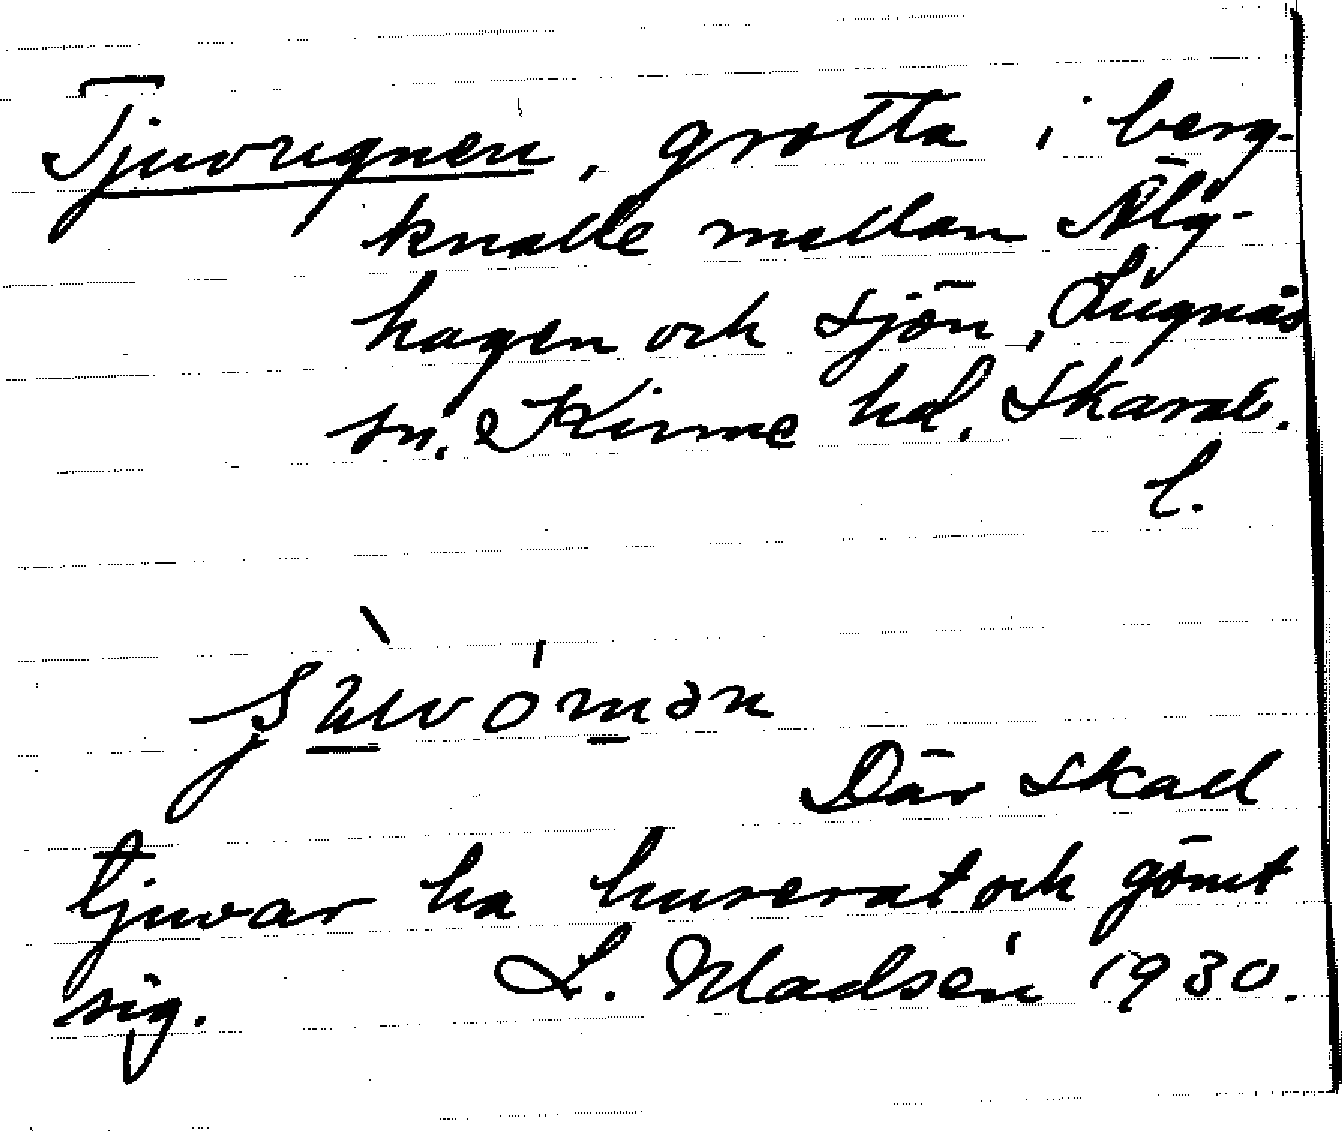 Tjuvugnen, grotta i berg-
knalle mellan Älg-
hagen och sjön, Lugnås
sn. Kinne hd. Skarab.
l.
Där skall
tjuvar ha huserat och gömt
sig. L. Madsén 1930.